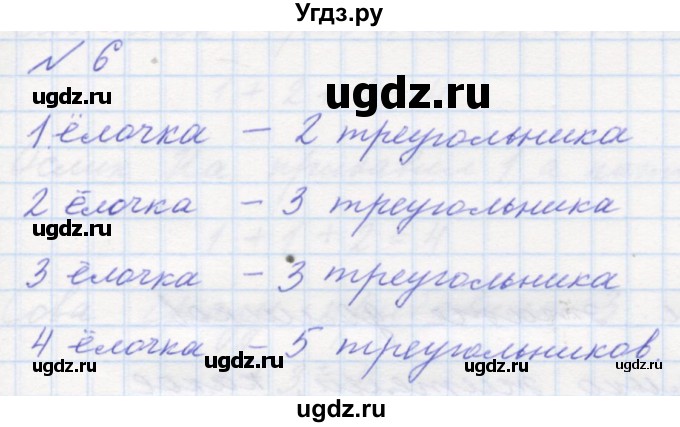 Угдз.ру
N 6
ugdz.ru
ugdz.ru
1 ёлочка – 2 треугольника
ugdz.ru
2 ёлочка – 3 треугольника
ugdz.ru
3 ёлочка – 3 треугольника
4 ёлочка – 5 треугольников
ugdz.ru ugdz.ru ugdz.ru
ugdz.ru